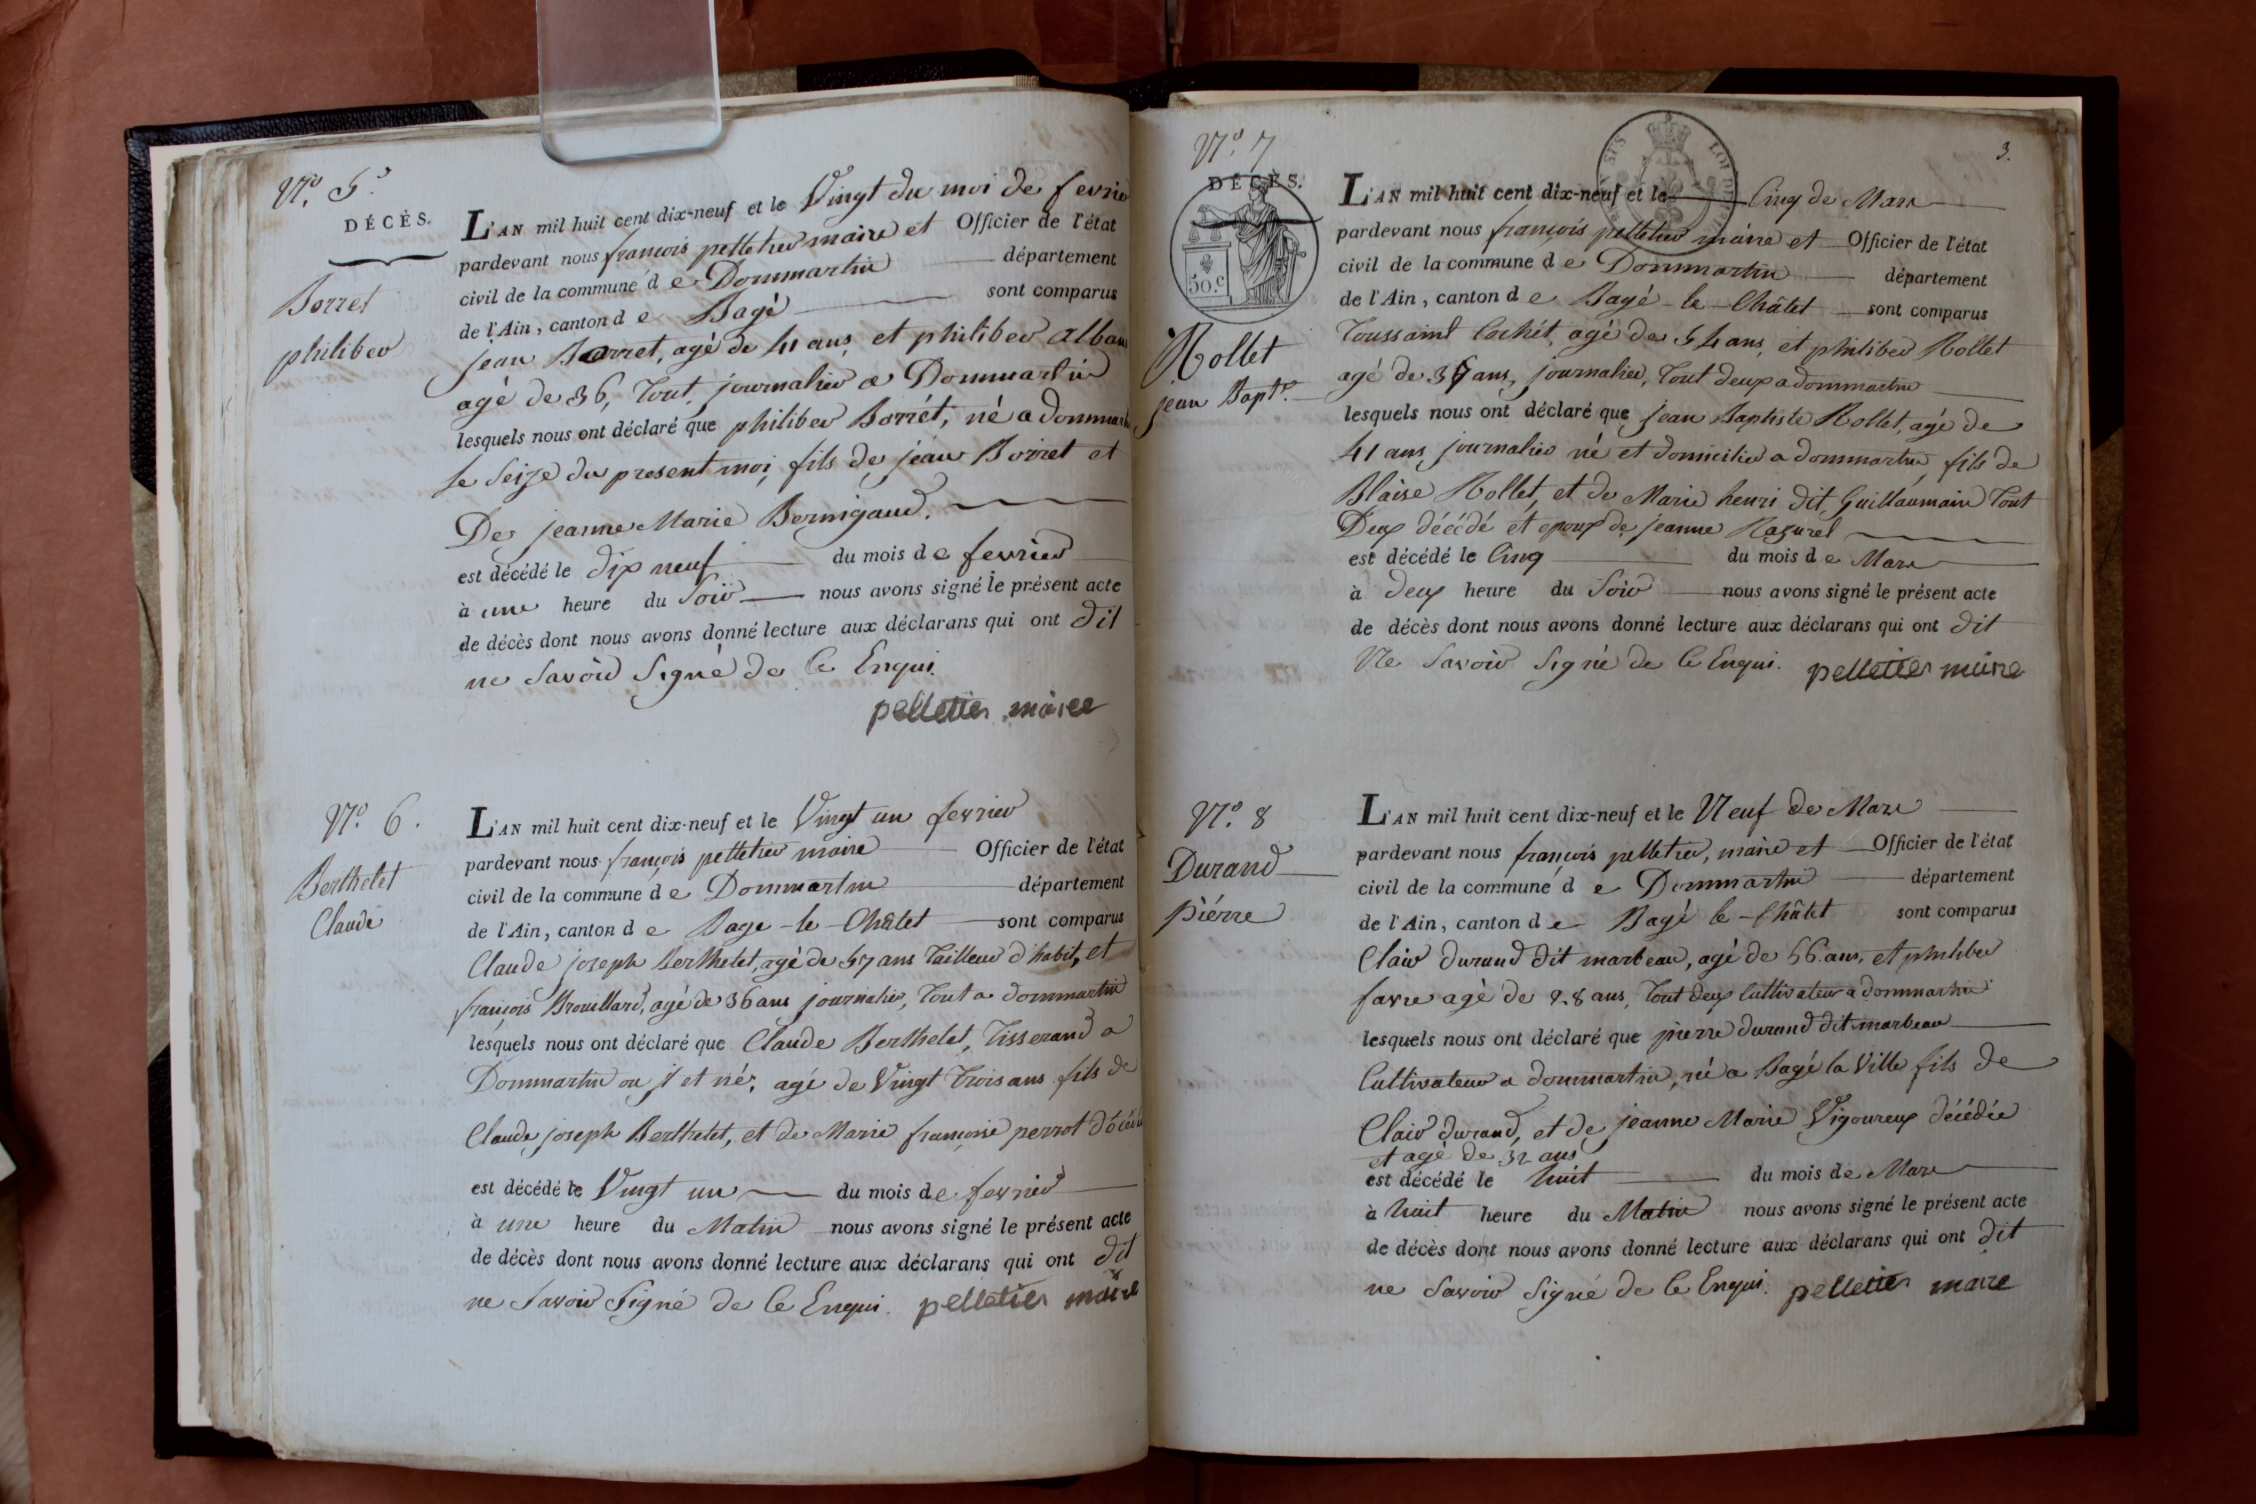 N.º 5.
DÉCÈS.
Borret
philiber
L'AN mil huit cent dix-neuf et le Vingt du moi de fevrier
pardevant nous françois pelletier maire et Officier de l'état
civil de la commune d e Dommartin département
de l'Ain, canton d e Bagé sont comparus
jean Borret, agé de 41 ans, et philiber alban
agé de 36, tout journalier a Dommartin
lesquels nous ont déclaré que philiber Borrét, né a dommartin
le Seize du present moi, fils de jean Borret et
De jeanne Marie Bernigaud.
est décédé le dix neuf du mois d e fevrier
à une heure du Soir nous avons signé le présent acte
de décès dont nous avons donné lecture aux déclarans qui ont dit
ne Savoir Signé de Ce Enqui.
pelletier maire
N.º 6.
Berthelet
Claude
L'AN mil huit cent dix-neuf et le Vingt un fevrier
pardevant nous françois pelletier maire Officier de l'état
civil de la commune d e Dommartin département
de l'Ain, canton d e Bage-le-Châtel sont comparus
Claude joseph Berthelet, agé de 57 ans Tailleur d'habit, et
françois Brouillard, agé de 36 ans journalier, tout a dommartin
lesquels nous ont déclaré que Claude Berthelet, Tisserand a
Dommartin ou il et né, agé de Vingt trois ans fils de
Claude joseph Berthelet, et de Marie françoise perrot
est décédé le Vingt un du mois d e fevrier
à une heure du Matin nous avons signé le présent acte
de décès dont nous avons donné lecture aux déclarans qui ont dit
ne Savoir Signé de Ce Enqui. pelletier maire
3.
N.º 7
DÉCÈS.
50.c
Rollet
jean Bapt.e
L'AN mil huit cent dix-neuf et le Cinq de Mars
pardevant nous françois pelletier maire et Officier de l'état
civil de la commune d e Dommartin département
de l'Ain, canton d e Bagé-le-Châtel sont comparus
Toussaint Cochét, agé de 54 ans, et philiber Rollet
agé de ans, journalier, Tout deux a dommartin
lesquels nous ont déclaré que jean Baptiste Rollet, agé de
41 ans journalier né et domicilier a dommartin, fils de
Blaise Rollet, et de Marie henri dit Guillaumain Tout
Deux décédé et epoux de jeanne Razurel
est décédé le Cinq du mois d e Mars
à deux heure du Soir nous avons signé le présent acte
de décès dont nous avons donné lecture aux déclarans qui ont dit
Ne Savoir Signé de Ce Enqui. pelletier maire
N.º 8
Durand
Piérre
L'AN mil huit cent dix-neuf et le Neuf de Mars
pardevant nous françois pelletier, maire et Officier de l'état
civil de la commune d e Dommartin département
de l'Ain, canton d e Bagé le-Châtel sont comparus
Clair durand dit marbeau, agé de 56 ans, et philiber
favre agé de 28 ans, Tout deux Cultivateur a dommartin
lesquels nous ont déclaré que pierre durand dit marbeau
Cultivateur a dommartin, né a Bagé la Ville fils de
Clair durand, et de jeanne Marie Vigoureux décédée
et agé de 32 ans
est décédé le huit du mois d e Mars
à huit heure du Matin nous avons signé le présent acte
de décès dont nous avons donné lecture aux déclarans qui ont dit
ne Savoir Signé de Ce Enqui. pelletier maire